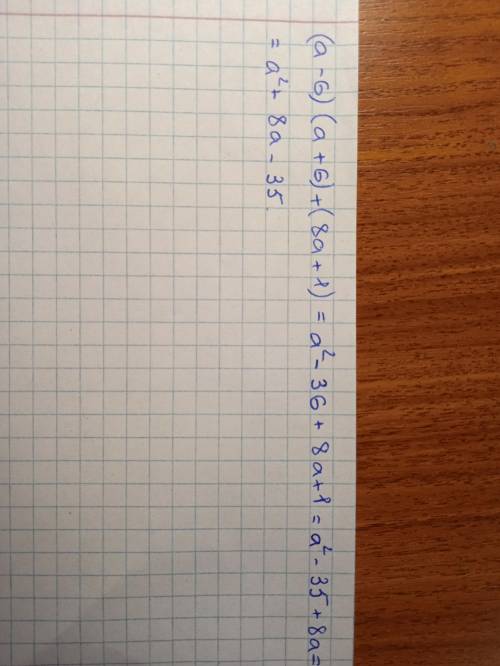 (a-6)(a+6)+(8a+1)=a²-36+8a+1=a²-35+8a=
=a²+8a-35.